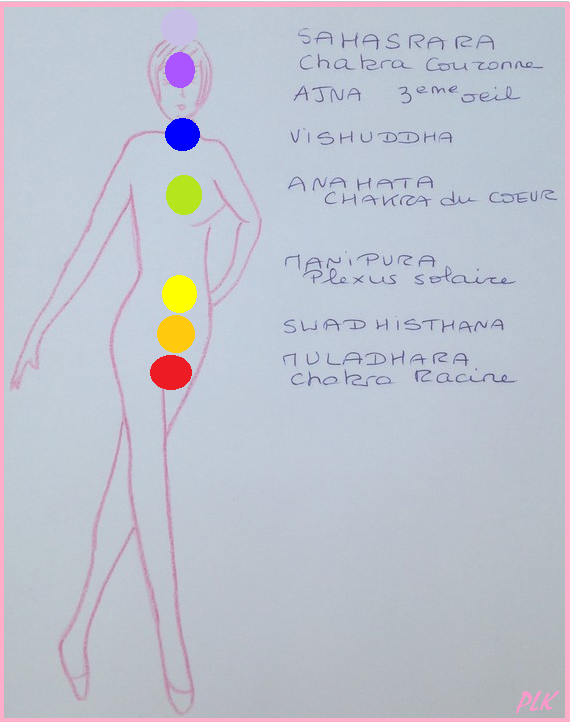 SAHASRARA
Chakra Couronne
AJNA 3eme oeil
VISHUDDHA
ANAHATA
CHAKRA du COEUR
MANIPURA
Plexus solaire
SWADHISTHANA
MULADHARA
Chakra Racine
PLK